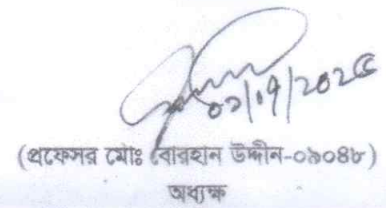 ০২/০৭/২০২৫
(প্রফেসর মোঃ বোরহান উদ্দীন-০৯০৪৮)
অধ্যক্ষ